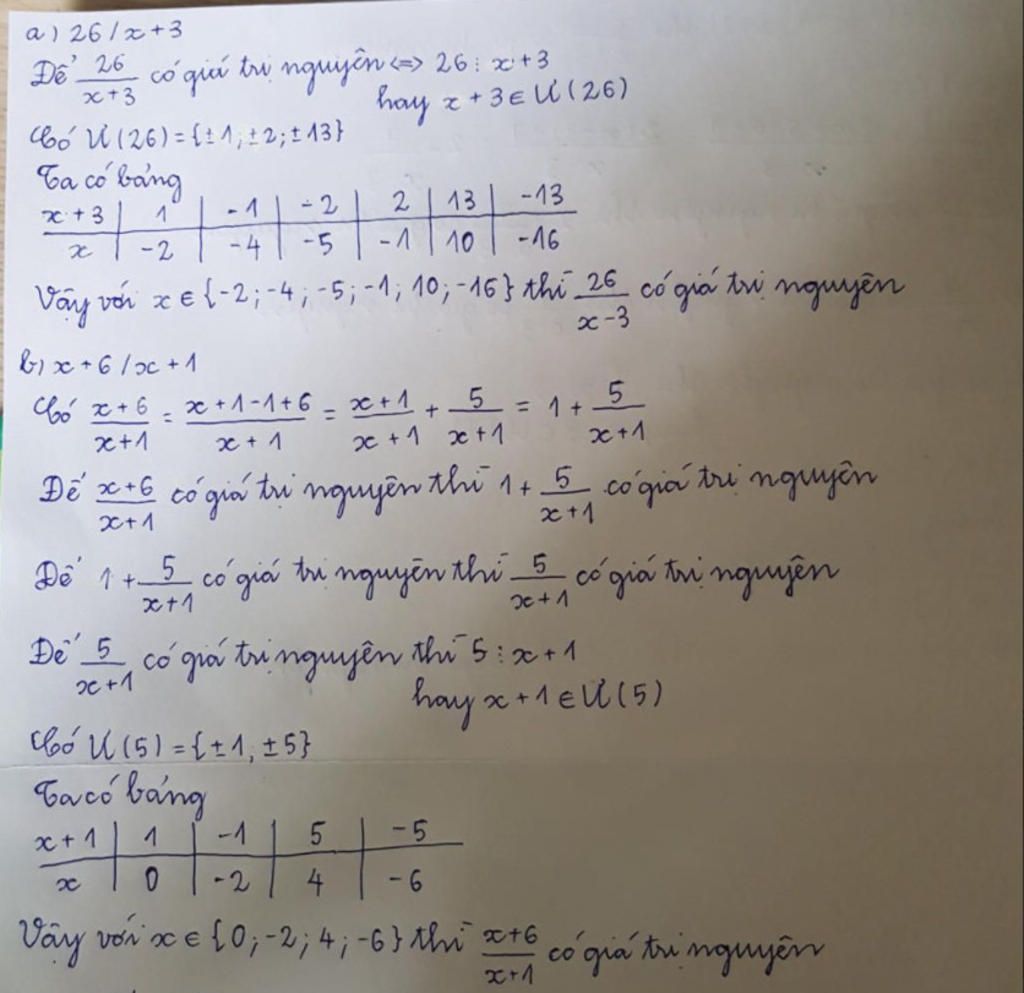 a) 26/x+3
Để 26/x+3 có giá trị nguyên <=> 26 ⋮ x+3
hay x + 3 ∈ Ư(26)
Có Ư(26) = {±1; ±2; ±13}
Ta có bảng
x+3 | 1 | -1 | -2 | 2 | 13 | -13
x | -2 | -4 | -5 | -1 | 10 | -16
Vậy với x ∈ {-2; -4; -5; -1; 10; -16} thì 26/x-3 có giá trị nguyên
b) x+6/x+1
Có x+6/x+1 = x+1-1+6/x+1 = x+1/x+1 + 5/x+1 = 1 + 5/x+1
Để x+6/x+1 có giá trị nguyên thì 1 + 5/x+1 có giá trị nguyên
Để 1 + 5/x+1 có giá trị nguyên thì 5/x+1 có giá trị nguyên
Để 5/x+1 có giá trị nguyên thì 5 ⋮ x+1
hay x + 1 ∈ Ư(5)
Có Ư(5) = {±1, ±5}
Ta có bảng
x+1 | 1 | -1 | 5 | -5
x | 0 | -2 | 4 | -6
Vậy với x ∈ {0; -2; 4; -6} thì x+6/x+1 có giá trị nguyên